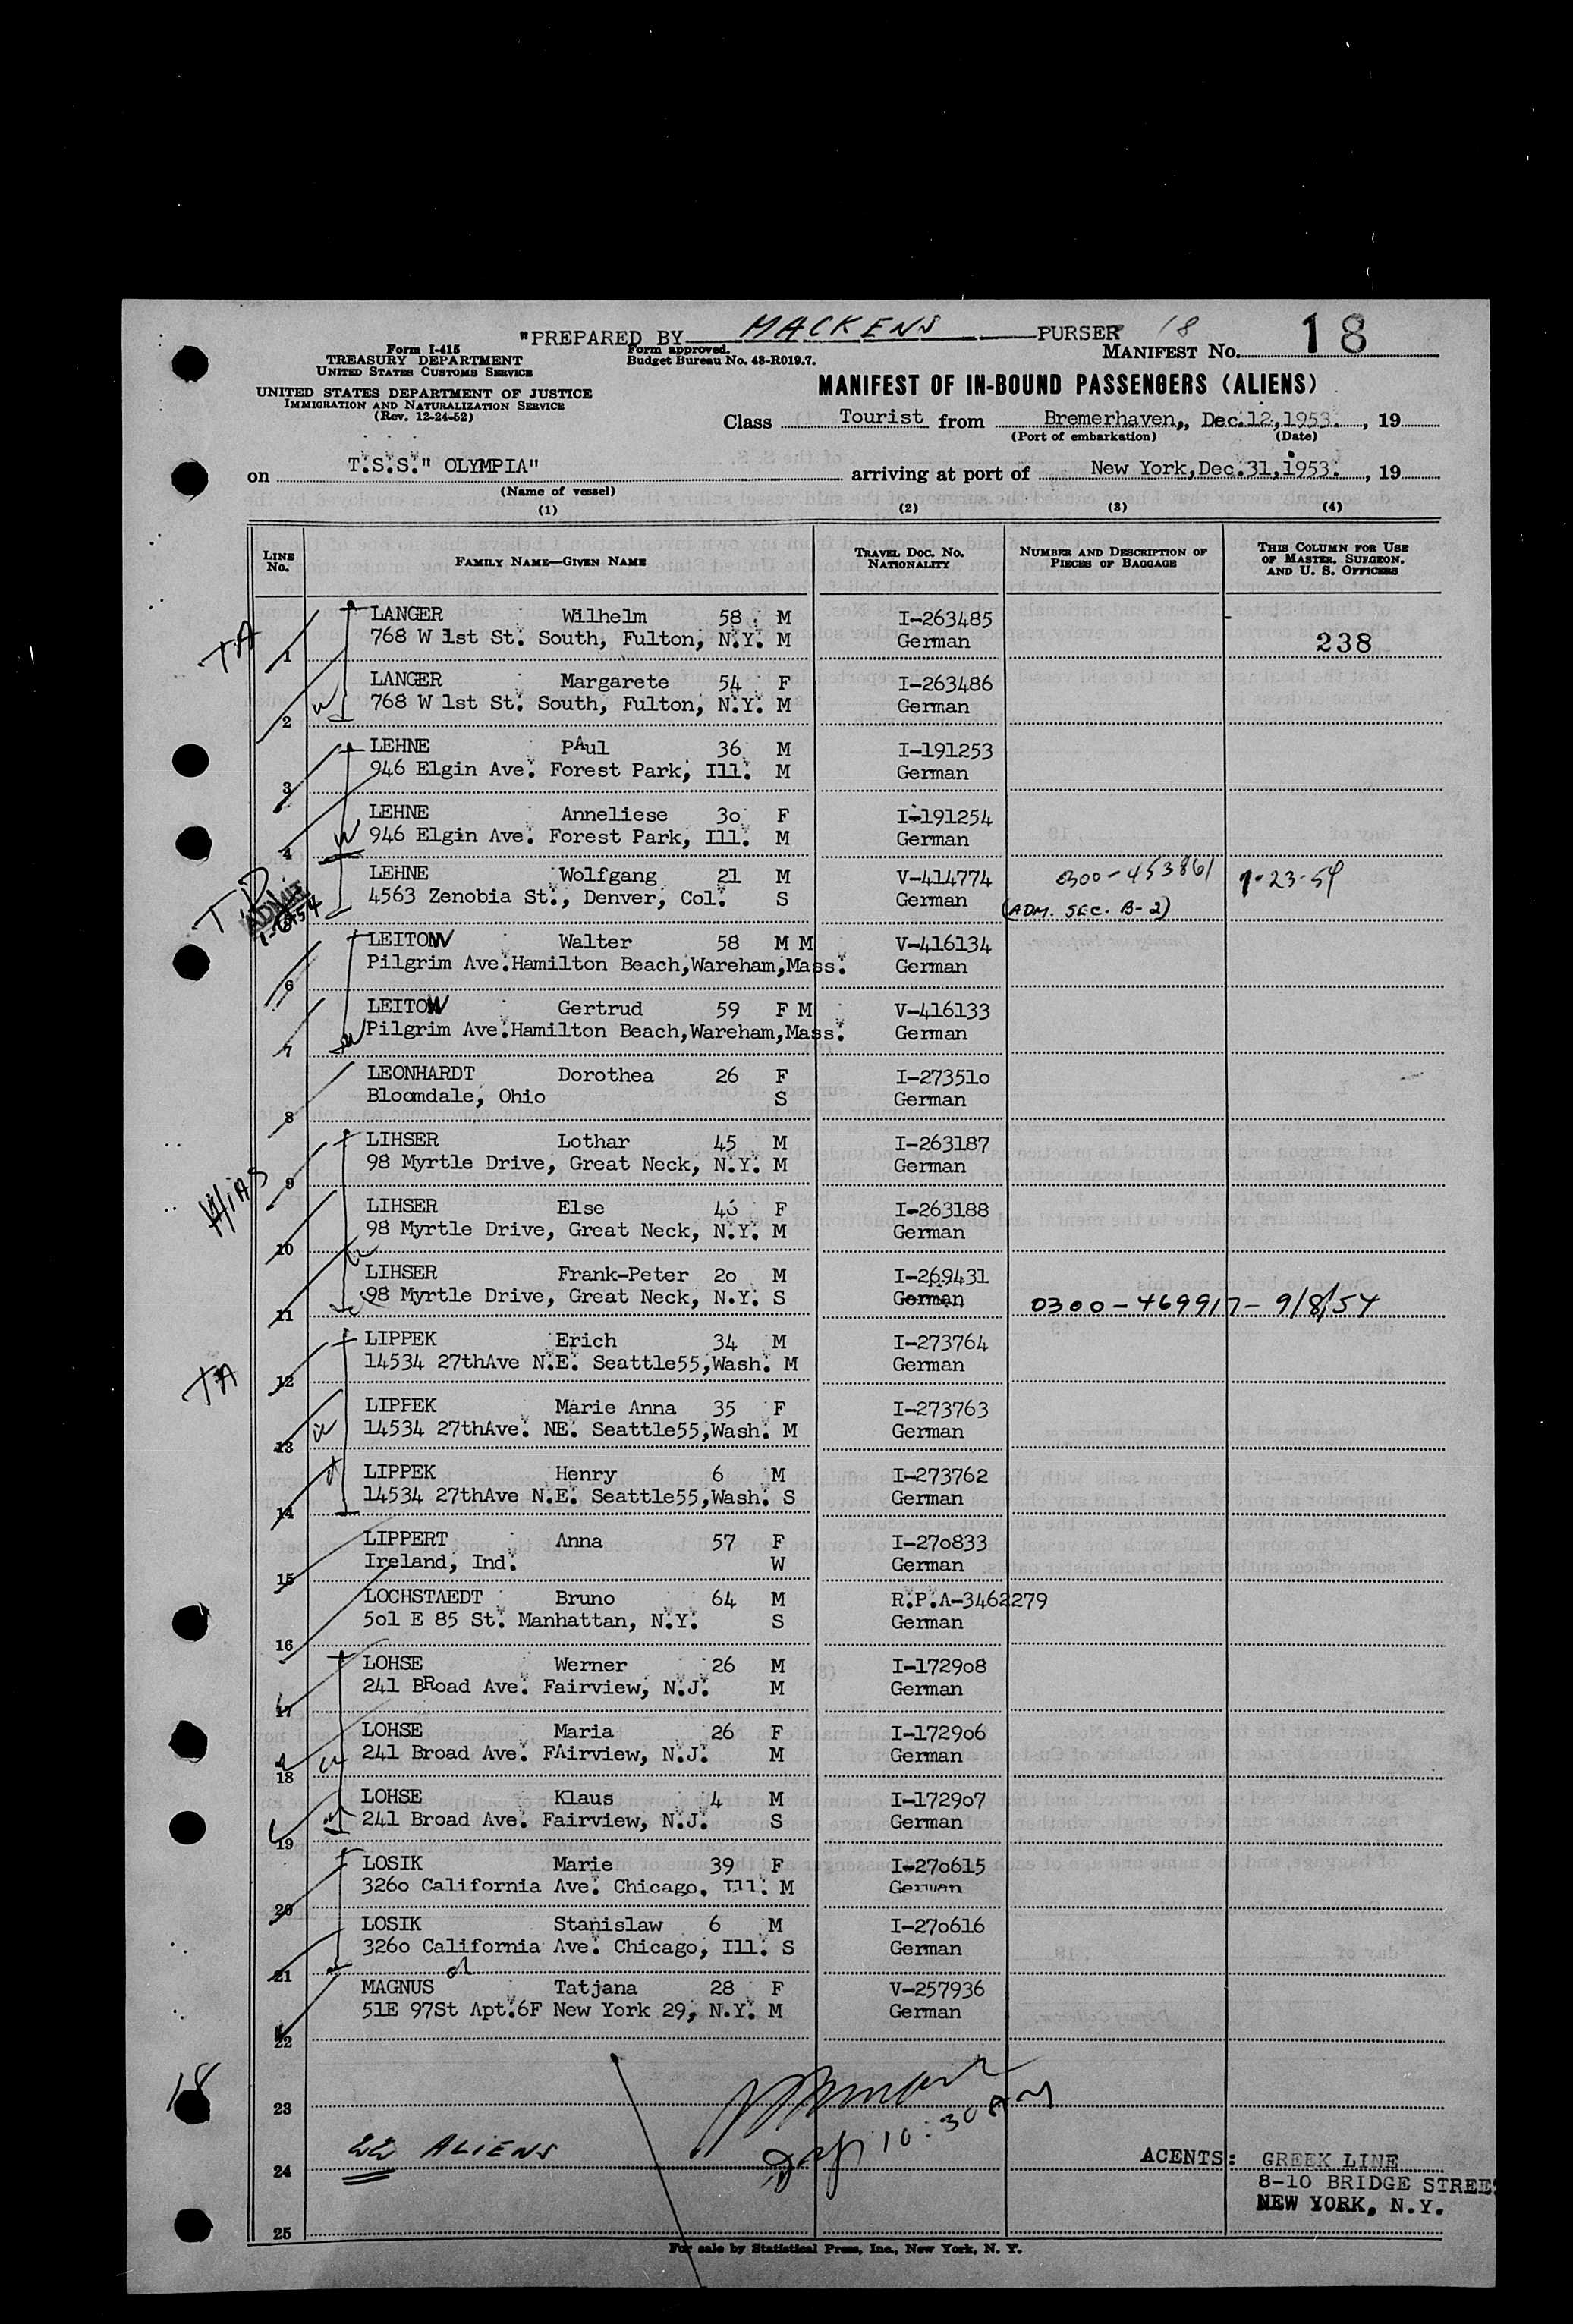 "PREPARED BY MACKENS PURSER 18
Form I-415
TREASURY DEPARTMENT
UNITED STATES CUSTOMS SERVICE
Form approved.
Budget Bureau No. 43-R019.7.
MANIFEST NO. 18
UNITED STATES DEPARTMENT OF JUSTICE
IMMIGRATION AND NATURALIZATION SERVICE
(Rev. 12-24-52)
MANIFEST OF IN-BOUND PASSENGERS (ALIENS)
Class Tourist from Bremerhaven,, Dec.12,1953. , 19
(Port of embarkation) (Date)
on T.S.S." OLYMPIA" arriving at port of New York,Dec.31,1953. , 19
(Name of vessel)
(1) (2) (3) (4)
LINE NO. FAMILY NAME—GIVEN NAME TRAVEL DOC. NO. NATIONALITY NUMBER AND DESCRIPTION OF PIECES OF BAGGAGE THIS COLUMN FOR USE OF MASTER, SURGEON, AND U. S. OFFICERS
LANGER Wilhelm 58 M I-263485
TA 1 768 W 1st St. South, Fulton, N.Y. M German 238
LANGER Margarete 54 F I-263486
2 768 W 1st St. South, Fulton, N.Y. M German
LEHNE PAul 36 M I-191253
3 946 Elgin Ave. Forest Park, Ill. M German
LEHNE Anneliese 3o F I-191254
4 946 Elgin Ave. Forest Park, Ill. M German
LEHNE Wolfgang 21 M V-414774 0300-453861 1-23-54
4563 Zenobia St., Denver, Col. S German (ADM. SEC. B-2)
LEITOW Walter 58 M M V-416134
6 Pilgrim Ave.Hamilton Beach,Wareham,Mass. German
LEITOW Gertrud 59 F M V-416133
7 Pilgrim Ave.Hamilton Beach,Wareham,Mass. German
LEONHARDT Dorothea 26 F I-27351o
8 Bloomdale, Ohio S German
LIHSER Lothar 45 M I-263187
9 98 Myrtle Drive, Great Neck, N.Y. M German
HIAS
LIHSER Else 46 F I-263188
10 98 Myrtle Drive, Great Neck, N.Y. M German
LIHSER Frank-Peter 2o M I-269431
11 98 Myrtle Drive, Great Neck, N.Y. S German 0300-469917- 9/8/54
LIPPEK Erich 34 M I-273764
TA 12 14534 27thAve N.E. Seattle55,Wash. M German
LIPPEK Marie Anna 35 F I-273763
13 14534 27thAve. NE. Seattle55,Wash. M German
LIPPEK Henry 6 M I-273762
14 14534 27thAve N.E. Seattle55,Wash. S German
LIPPERT Anna 57 F I-27o833
15 Ireland, Ind. W German
LOCHSTAEDT Bruno 64 M R.P.A-3462279
16 5o1 E 85 St. Manhattan, N.Y. S German
LOHSE Werner 26 M I-1729o8
17 241 BRoad Ave. Fairview, N.J. M German
LOHSE Maria 26 F I-1729o6
18 241 Broad Ave. FAirview, N.J. M German
LOHSE Klaus 4 M I-1729o7
19 241 Broad Ave. Fairview, N.J. S German
LOSIK Marie 39 F I-27o615
20 326o California Ave. Chicago, Ill. M German
LOSIK Stanislaw 6 M I-27o616
21 326o California Ave. Chicago, Ill. S German
MAGNUS Tatjana 28 F V-257936
22 51E 97St Apt.6F New York 29, N.Y. M German
18
23
10:30 AM
22 ALIENS
24
AGENTS: GREEK LINE
8-10 BRIDGE STREET
NEW YORK, N.Y.
25
For sale by Statistical Press, Inc., New York, N. Y.